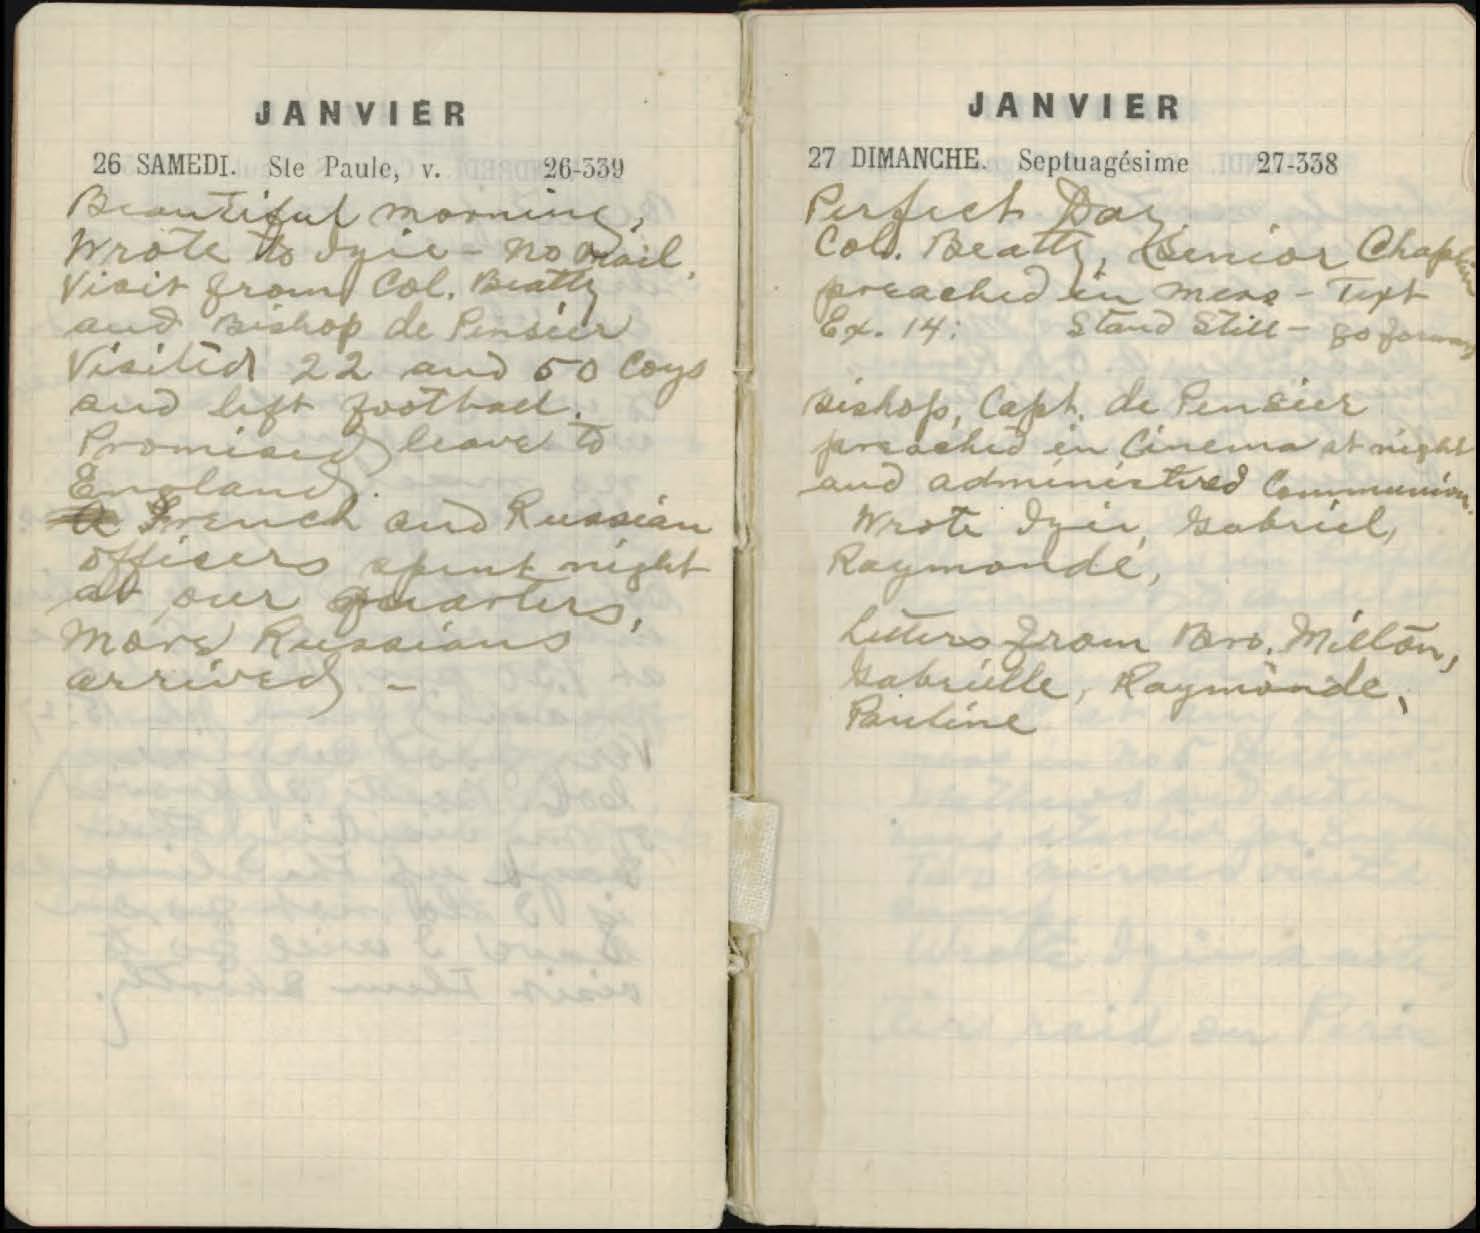 JANVIER
26 SAMEDI. Ste Paule, v. 26-339
Beautiful morning,
Wrote to Izie - no mail.
Visit from Col. Beatty
and Bishop de Pensier
Visited 22 and 50 Coys
and left football.
Promised leave to
England.
French and Russian
officers spent night
at our quarters,
More Russians
arrived -
JANVIER
27 DIMANCHE. Septuagésime 27-338
Perfect Day
Col. Beatty, Senior Chaplain
preached in mess - Text
Ex. 14: Stand Still - go forward
Bishop, Capt. de Pensier
preached in Cinema at night
and administred Communion.
Wrote Izie, Gabriel,
Raymonde,
Letters from Bro. Milton,
Gabrielle, Raymonde,
Pauline